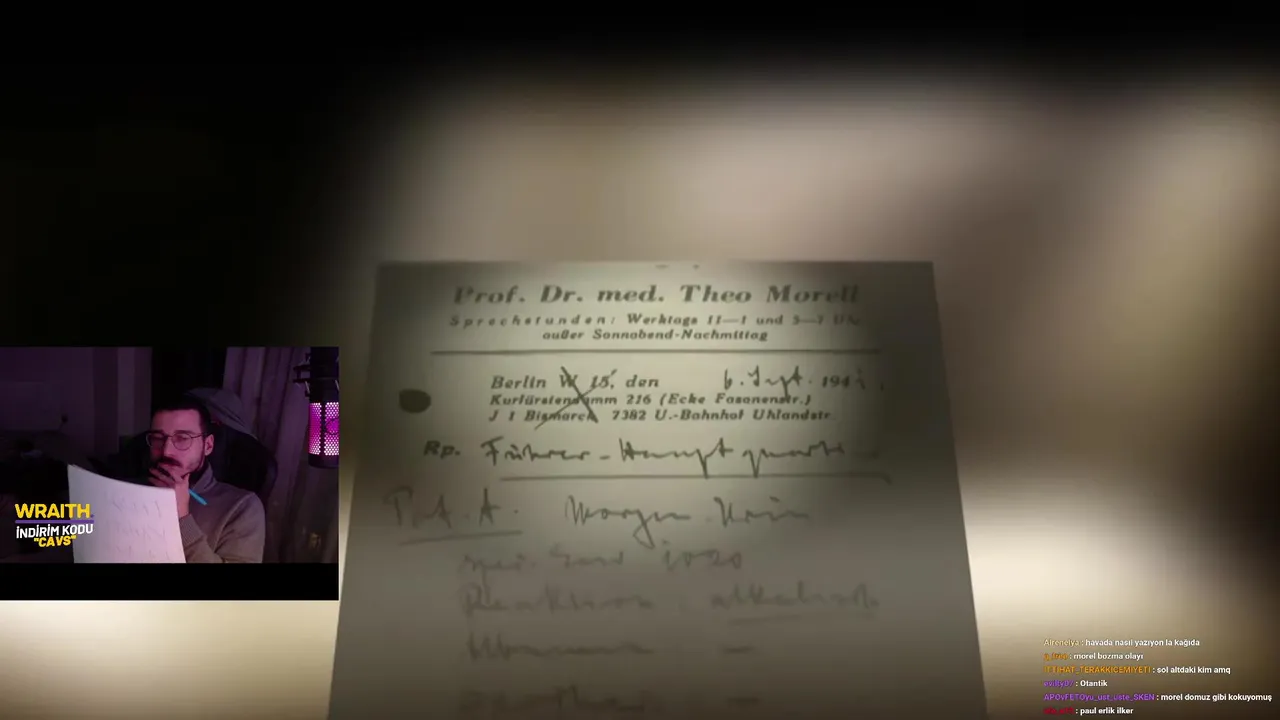 Prof. Dr. med. Theo Morell
Sprechstunden: Werktags 11—1 und 5—7 Uhr
außer Sonnabend-Nachmittag
Berlin W 15, den 6. Sept. 194
Kurfürstendamm 216 (Ecke Fasanenstr.)
J 1 Bismarck 7382 U.-Bahnhof Uhlandstr.
Rp. Führer-Hauptquart
Pat. A. Morgen-Urin
spez. Gew 1020
Reaktion: alkalisch
WRAITH
İNDİRİM KODU
"CAVS"
Alreneiya : havada nasıl yazıyon la kağıda
: morel bozma olayı
İTTİHAT_TERAKKİCEMİYETİ : sol altdaki kim amq
: Otantik
APOvFETOyu_ust_uste_SKEN : morel domuz gibi kokuyomuş
: paul erlik ilker